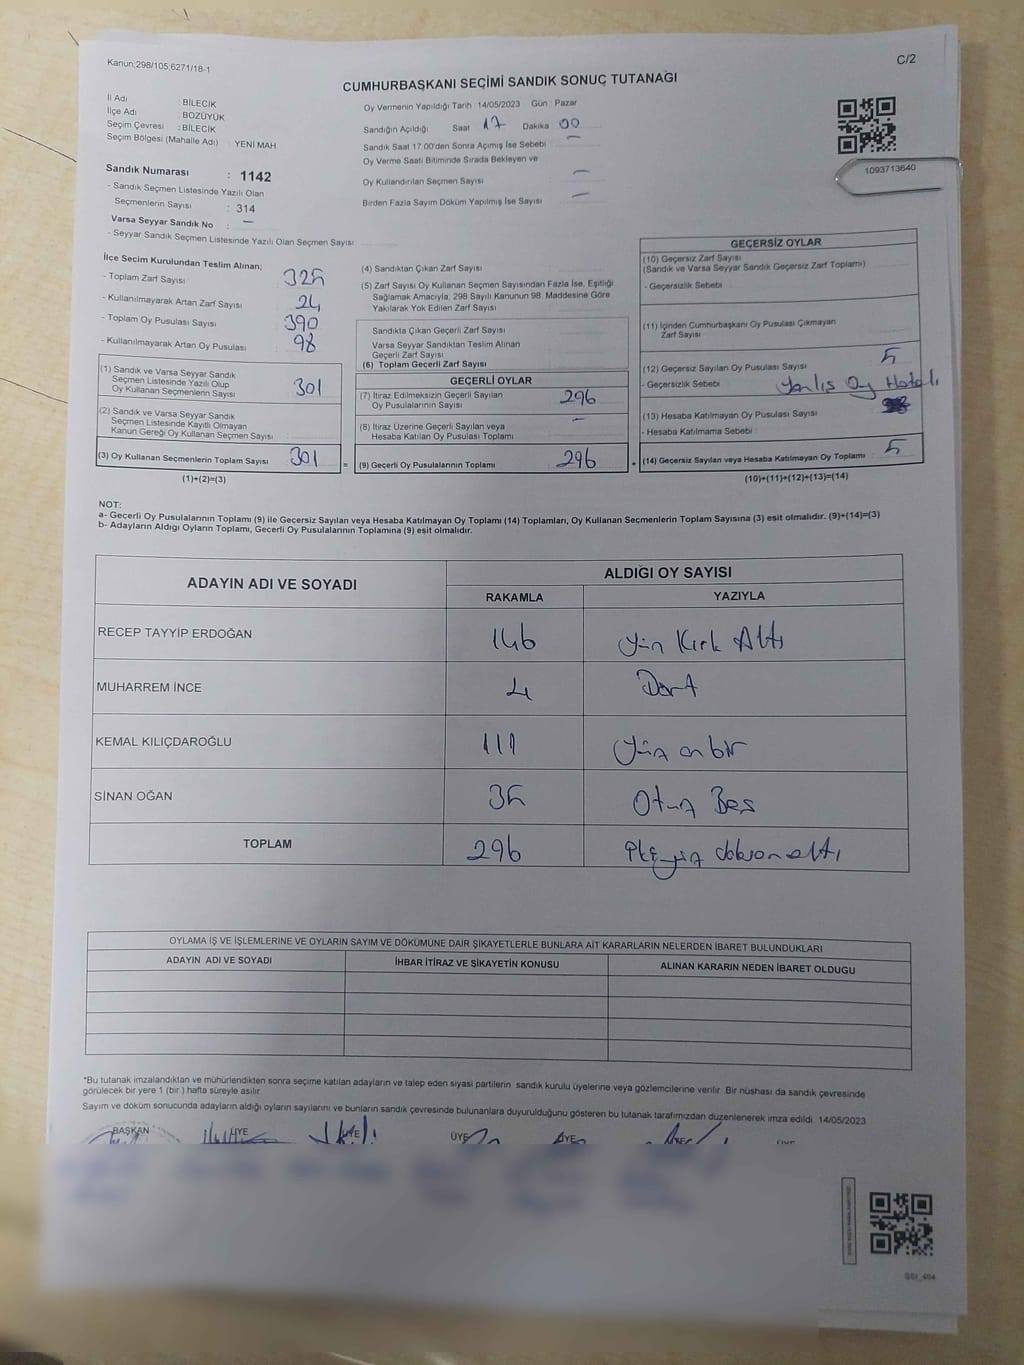 Kanun;298/105,6271/18-1
C/2
CUMHURBAŞKANI SEÇİMİ SANDIK SONUÇ TUTANAĞI
İl Adı : BİLECİK
İlçe Adı : BOZÜYÜK
Seçim Çevresi : BİLECİK
Seçim Bölgesi (Mahalle Adı) : YENİ MAH.
Oy Vermenin Yapıldığı Tarih 14/05/2023 Gün Pazar
Sandığın Açıldığı Saat 17 Dakika 00
Sandık Saat 17:00'den Sonra Açımış İse Sebebi —
Oy Verme Saati Bitiminde Sırada Bekleyen ve
Oy Kullandırılan Seçmen Sayısı —
Birden Fazla Sayım Döküm Yapılmış İse Sayısı —
1093713640
Sandık Numarası : 1142
- Sandık Seçmen Listesinde Yazılı Olan
Seçmenlerin Sayısı : 314
Varsa Seyyar Sandık No : —
- Seyyar Sandık Seçmen Listesinde Yazılı Olan Seçmen Sayısı
İlçe Secim Kurulundan Teslim Alınan;
- Toplam Zarf Sayısı 325
- Kullanılmayarak Artan Zarf Sayısı 24
- Toplam Oy Pusulası Sayısı 390
- Kullanılmayarak Artan Oy Pusulası 98
(1) Sandık ve Varsa Seyyar Sandık
Seçmen Listesinde Yazılı Olup
Oy Kullanan Seçmenlerin Sayısı 301
(2) Sandık ve Varsa Seyyar Sandık
Seçmen Listesinde Kayıtlı Olmayan
Kanun Gereği Oy Kullanan Seçmen Sayısı
(3) Oy Kullanan Seçmenlerin Toplam Sayısı 301
(1)+(2)=(3)
(4) Sandıktan Çıkan Zarf Sayısı
(5) Zarf Sayısı Oy Kullanan Seçmen Sayısından Fazla İse, Eşitliği
Sağlamak Amacıyla, 298 Sayılı Kanunun 98. Maddesine Göre
Yakılarak Yok Edilen Zarf Sayısı
Sandıkta Çıkan Geçerli Zarf Sayısı
Varsa Seyyar Sandıktan Teslim Alınan
Geçerli Zarf Sayısı
(6) Toplam Gecerli Zarf Sayısı
GEÇERLİ OYLAR
(7) İtiraz Edilmeksizin Geçerli Sayılan
Oy Pusulalarının Sayısı 296
(8) İtiraz Üzerine Geçerli Sayılan veya
Hesaba Katılan Oy Pusulası Toplamı —
= (9) Geçerli Oy Pusulalarının Toplamı 296
GEÇERSİZ OYLAR
(10) Geçersiz Zarf Sayısı
(Sandık ve Varsa Seyyar Sandık Geçersiz Zarf Toplamı)
- Geçersizlik Sebebi
(11) İçinden Cumhurbaşkanı Oy Pusulası Çıkmayan
Zarf Sayısı
(12) Geçersiz Sayılan Oy Pusulası Sayısı 5
- Geçersizlik Sebebi Yanlış Oy Hatalı
(13) Hesaba Katılmayan Oy Pusulası Sayısı
- Hesaba Katılmama Sebebi
+ (14) Geçersiz Sayılan veya Hesaba Katılmayan Oy Toplamı 5
(10)+(11)+(12)+(13)=(14)
NOT:
a- Gecerli Oy Pusulalarının Toplamı (9) ile Gecersiz Sayılan veya Hesaba Katılmayan Oy Toplamı (14) Toplamları, Oy Kullanan Seçmenlerin Toplam Sayısına (3) esit olmalıdır. (9)+(14)=(3)
b- Adayların Aldığı Oyların Toplamı, Gecerli Oy Pusulalarının Toplamına (9) esit olmalıdır.
ADAYIN ADI VE SOYADI
ALDIĞI OY SAYISI
RAKAMLA YAZIYLA
RECEP TAYYİP ERDOĞAN 146 Yüz Kırk Altı
MUHARREM İNCE 4 Dört
KEMAL KILIÇDAROĞLU 111 Yüz on bir
SİNAN OĞAN 35 Otuz Beş
TOPLAM 296 İkiyüz doksan altı
OYLAMA İŞ VE İŞLEMLERİNE VE OYLARIN SAYIM VE DÖKÜMÜNE DAİR ŞİKAYETLERLE BUNLARA AİT KARARLARIN NELERDEN İBARET BULUNDUKLARI
ADAYIN ADI VE SOYADI
İHBAR İTİRAZ VE ŞİKAYETİN KONUSU
ALINAN KARARIN NEDEN İBARET OLDUGU
*Bu tutanak imzalandıktan ve mühürlendikten sonra seçime katılan adayların ve talep eden siyasi partilerin sandık kurulu üyelerine veya gözlemcilerine verilir. Bir nüshası da sandık çevresinde
görülecek bir yere 1 (bir ) hafta süreyle asılır.
Sayım ve döküm sonucunda adayların aldığı oyların sayılarını ve bunların sandık çevresinde bulunanlara duyurulduğunu gösteren bu tutanak tarafımızdan düzenlenerek imza edildi. 14/05/2023
BAŞKAN ÜYE ÜYE ÜYE ÜYE ÜYE ÜYE